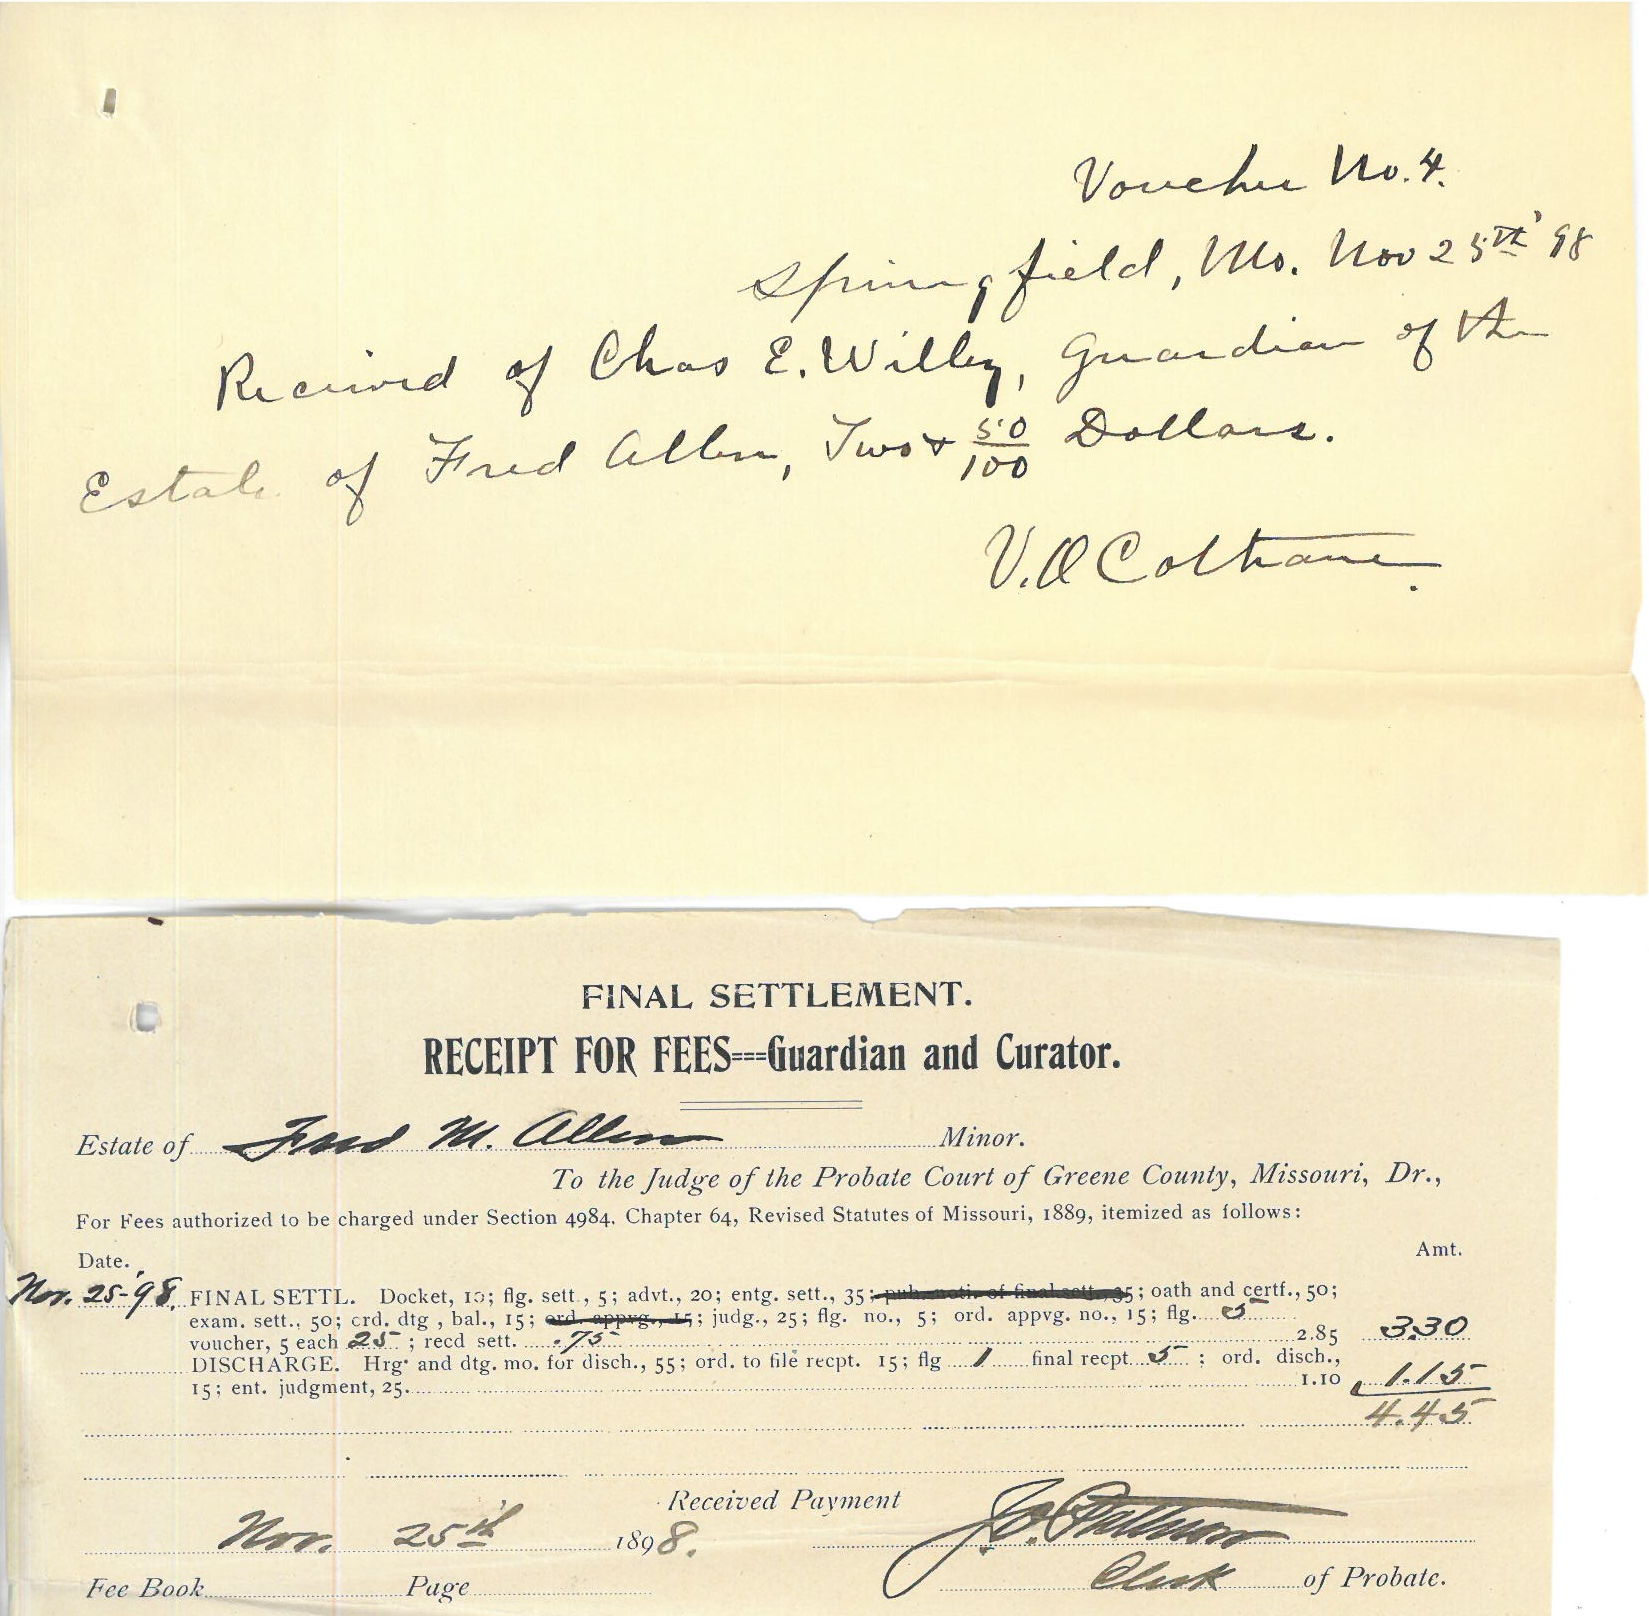 Voucher No. 4.
Springfield, Mo. Nov 25th '98
Received of Chas E. Willey, Guardian of the
Estate of Fred Allen, Two & 50/100 Dollars.
V. O Coltrane.
FINAL SETTLEMENT.
RECEIPT FOR FEES===Guardian and Curator.
Estate of Fred M. Allen Minor.
To the Judge of the Probate Court of Greene County, Missouri, Dr.,
For Fees authorized to be charged under Section 4984, Chapter 64, Revised Statutes of Missouri, 1889, itemized as follows:
Date. Amt.
Nov. 25-'98. FINAL SETTL. Docket, 10; flg. sett., 5; advt., 20; entg. sett., 35; pub. noti. of final sett., 35; oath and certf., 50;
exam. sett., 50; crd. dtg, bal., 15; ord. appvg., 15; judg., 25; flg. no., 5; ord. appvg. no., 15; flg. 5
voucher, 5 each 25; recd sett. .75 2.85 3.30
DISCHARGE. Hrg. and dtg. mo. for disch., 55; ord. to file recpt. 15; flg 1 final recpt 5; ord. disch.,
15; ent. judgment, 25. 1.10 1.15
4.45
Received Payment
Nov. 25th 1898.
Clerk of Probate.
Fee Book Page